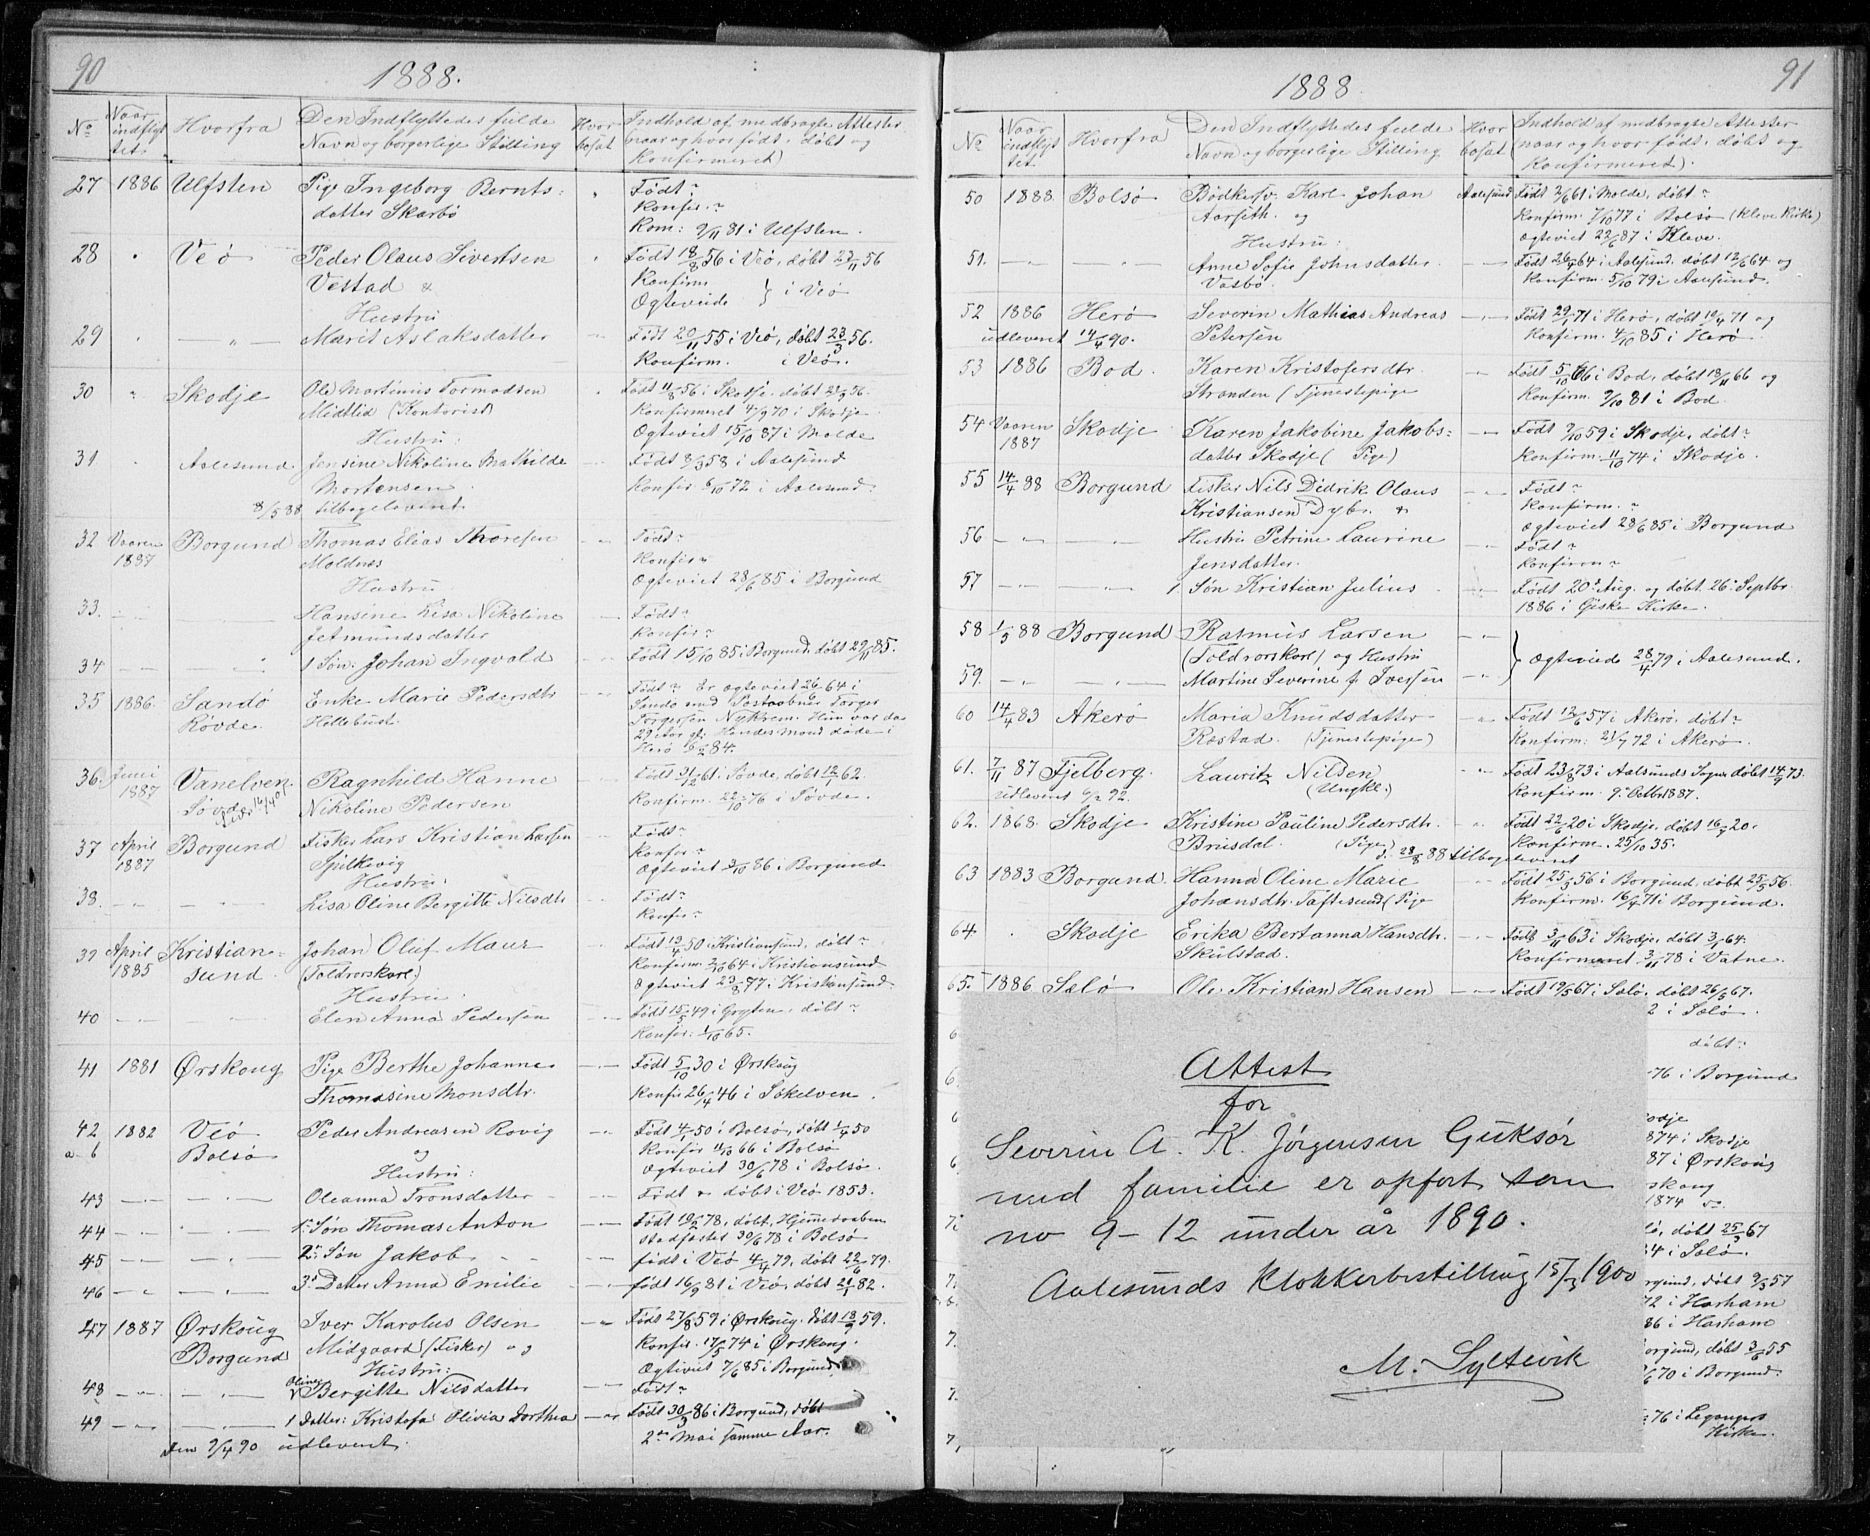 90
1888.
No
Naar indflyttet.
Hvorfra
Den Indflyttedes fulde Navn og borgerlige Stilling
Hvor bosat
Indhold af medbragte Attester (naar og hvor født, døbt og Konfirmeret)
27 1886 Ulfsten Pige Ingeborg Bernts= Født ?
datter Skarbø Konfir. ?
Kom: 9/11 81 i Ulfsten.
28 " Veø Peder Olaus Sivertsen Født 18/8 56 i Veø, døbt 23/11 56
Vestad & Konfirm
Hustru Ogteviede } i Veø
29 " — " — Marit Aslaksdatter Født 20/11 55 i Veø, døbt 23/3 56.
Konfirm. i Veø.
30 " Skodje Ole Martinus Tormodsen Født 11/8 56 i Skodje, døbt
Midtlid (Kontorist) Konfirmeret 4/9 70 i Skodje
Hustru: Ogteviet 15/10 87 i Molde
31 Aalesund Jensine Nikoline Mathilde Født 8/3 58 i Aalesund
Mortensen Konfir 6/10 72 i Aalesund.
8/5 88 tilbageleveret
32 Vaaren Borgund Thomas Elias Thoresen Født ?
1887 Moldnes Konfir ?
Hustru Ogteviet 28/6 85 i Borgund
33. Hansine Lisa Nikoline Født ?
Jetmundsdatter Konfir ?
34 1 Søn: Johan Ingvald Født 15/10 85 i Borgund, døbt 29/11 85.
35 1886 Sandø Enke Marie Pedersdtr Født ? Er ogteviet 26/6 64 i
Røvde Hellebust. Sandø med Postaabner Torger
Torgersen Nykrem. Hun var da
29 Aar gl. Hendes Mand døde i
Herø 84.
36. Juni Vanelven Ragnhild Hanne Født 31/12 61 i Søvde, døbt 12/1 62.
1887 Søvde Nikoline Pedersen Konfirm. 22/10 76 i Søvde.
37 April Borgund Fisker Lars Kristian Larsen Født ?
1887 Spilkevig Konfir ?
Hustru: Ogteviet 3/10 86 i Borgund
38. Lisa Oline Bergitte Nilsdtr Født ?
Konfir. ?
39 April Kristian= Johan Oluf Maur Født 13/4 50 i Kristiansund, døbt ?
1885 sund. (Toldrorskarl) Konfirm 2/10 64 i Kristiansund
Hustru. Ogteviet 23/8 77 i Kristiansund
40 Elen Anna Pedersen Født 15/5 49 i Gryten, døbt ?
Konfir: 1/10 65.
41 1881 Ørskoug Pige Berthe Johanne Født 5/10 30 i Ørskoug
Thomasine Monsdtr. Konfir 26/4 46 i Søkelven.
42 1882 Veø Peder Andreasen Rovig Født 4/1 50 i Bolsø, døbt 1/4 50
a-b Bolsø og Konfir 11/10 66 i Bolsø
Hustru: Ogteviet 30/6 78 i Bolsø.
43 Oleanna Tronsdatter Født & døbt i Veø 1853.
44 1. Søn Thomas Anton Født 19/2 78, døbt, Hjemmedaaben
stadfæstet 30/6 78 i Bolsø
45 2. Søn Jakob født i Veø 4/4 79, døbt 22/6 79.
46 3. Datter Anna Emilie født 16/9 81 i Veø, døbt 21/1 82.
47 1887 Ørskoug Iver Karolus Olsen Født 27/8 59 i Ørskoug. døbt 18/9 59.
Borgund Midgaard (Fisker) og Konfir. 17/5 74 i Ørskoug.
Hustru: Ogteviet 7/6 85 i Borgund
48 Oline Bergitte Nilsdatter Født ?
49 1 Datter: Kristofa Olivia Dorthea Født 30/3 86 i Borgund, døbt
Den 9/4 90 udleveret. 2den Mai samme Aar.
91
1888
No
Naar indflyttet.
Hvorfra
Den Indflyttedes fulde Navn og borgerlige Stilling
Hvor bosat
Indhold af medbragte Attester (naar og hvor født, døbt og Konfirmeret)
50 1888. Bolsø Bødkersv. Karl Johan Aalesund Født 2/6 61 i Molde, døbt ?
Aarseth. og Konfirm. 7/10 77 i Bolsø (Kleve Kirke)
Hustru: Ogteviet 29/6 87 i Kleve.
51. Anne Sofie Johnsdatter Født 26/4 64 i Aalesund, døbt 12/6 64 og
Vasbø. Konfirm. 5/10 79 i Aalesund.
52 1886 Herø Severin Mathias Andreas Født 29/1 71 i Herø, døbt 10/4 71 og
udleveret 14/4 90. Petersen Konfirm. 4/10 85 i Herø
53 1886 Bod. Karen Kristofersdtr. Født 5/10 66 i Bod, døbt 18/11 66 og
Stranden (Tjenestepige Konfirm. 9/10 81 i Bod.
54 Vaaren Skodje Karen Jakobine Jakobs= Født 7/10 59 i Skodje, døbt ?
1887 datter Skodje (Pige) Konfirm. 11/10 74 i Skodje.
55 14/4 88 Borgund Fisker Nils Didrik Olaus Født ?
Kristiansen Dyb. & Konfirm. ?
Ogteviet 28/6 85 i Borgund
56 Hustru Petrine Laurine Født ?
Jensdatter. Konfirm ?
57 1 Søn Kristian Julius Født 20de Aug. og døbt 26. Septbr.
1886 i Giske Kirke.
58 1/5 88 Borgund Rasmus Larsen
(Toldrorskarl) og Hustru } Ogteviede 28/4 79 i Aalesund.
59. Martine Severine f. Iversen
60 14/4 83 Akerø Maria Knudsdatter Født 12/6 57 i Akerø, døbt ?
Røstad. (Tjenestepige) Konfirm: 21/7 72 i Akerø.
61. 7/11 87 Fjelberg. Lauritz Nilsen Født 23/8 73 i Aalsunds Sogn døbt 14/9 73.
udleveret 6/2 92. (Ungkl.) Konfirm. 9. Octbr 1887.
62. 1868. Skodje Kristine Pauline Pedersdtr. Født 22/6 20 i Skodje, døbt 16/7 20.
Brusdal. (Pige) Konfirm. 25/10 35.
d. 28/8 88 tilbageleveret
63 1883 Borgund Hanna Oline Marie Født 25/3 56 i Borgund, døbt 25/5 56.
Johansdtr. Taftesund (Pige Konfirm. 16/4 71 i Borgund.
64. Skodje Erika Bertanna Hansdtr. Født 3/11 63 i Skodje, døbt 3/1 64.
Skulstad. Konfirmeret 3/11 78 i Vatne.
65. 1886 Sælø Ole Kristian Hansen Født 19/5 67 i Sælø, døbt 26/5 67.
2 i Sælø.
døbt ?
76 i Borgund
odje
874 i Skodje
87 i Ørskoug
skoug
1874
lø, døbt 25/3 67
84 i Sælø.
rgund, døbt 9/3 57
72 i Harham
86 i Harham
orgund, døbt 3/6 55
70 i Borgund.
76 i Leganger
Kirke.
Attest
for
Severin A. K. Jørgensen Guksør
med familie er opført som
no 9–12 under år 1890.
Aalesunds Klokkerbestilling 15/3 1900
M. Syltevik